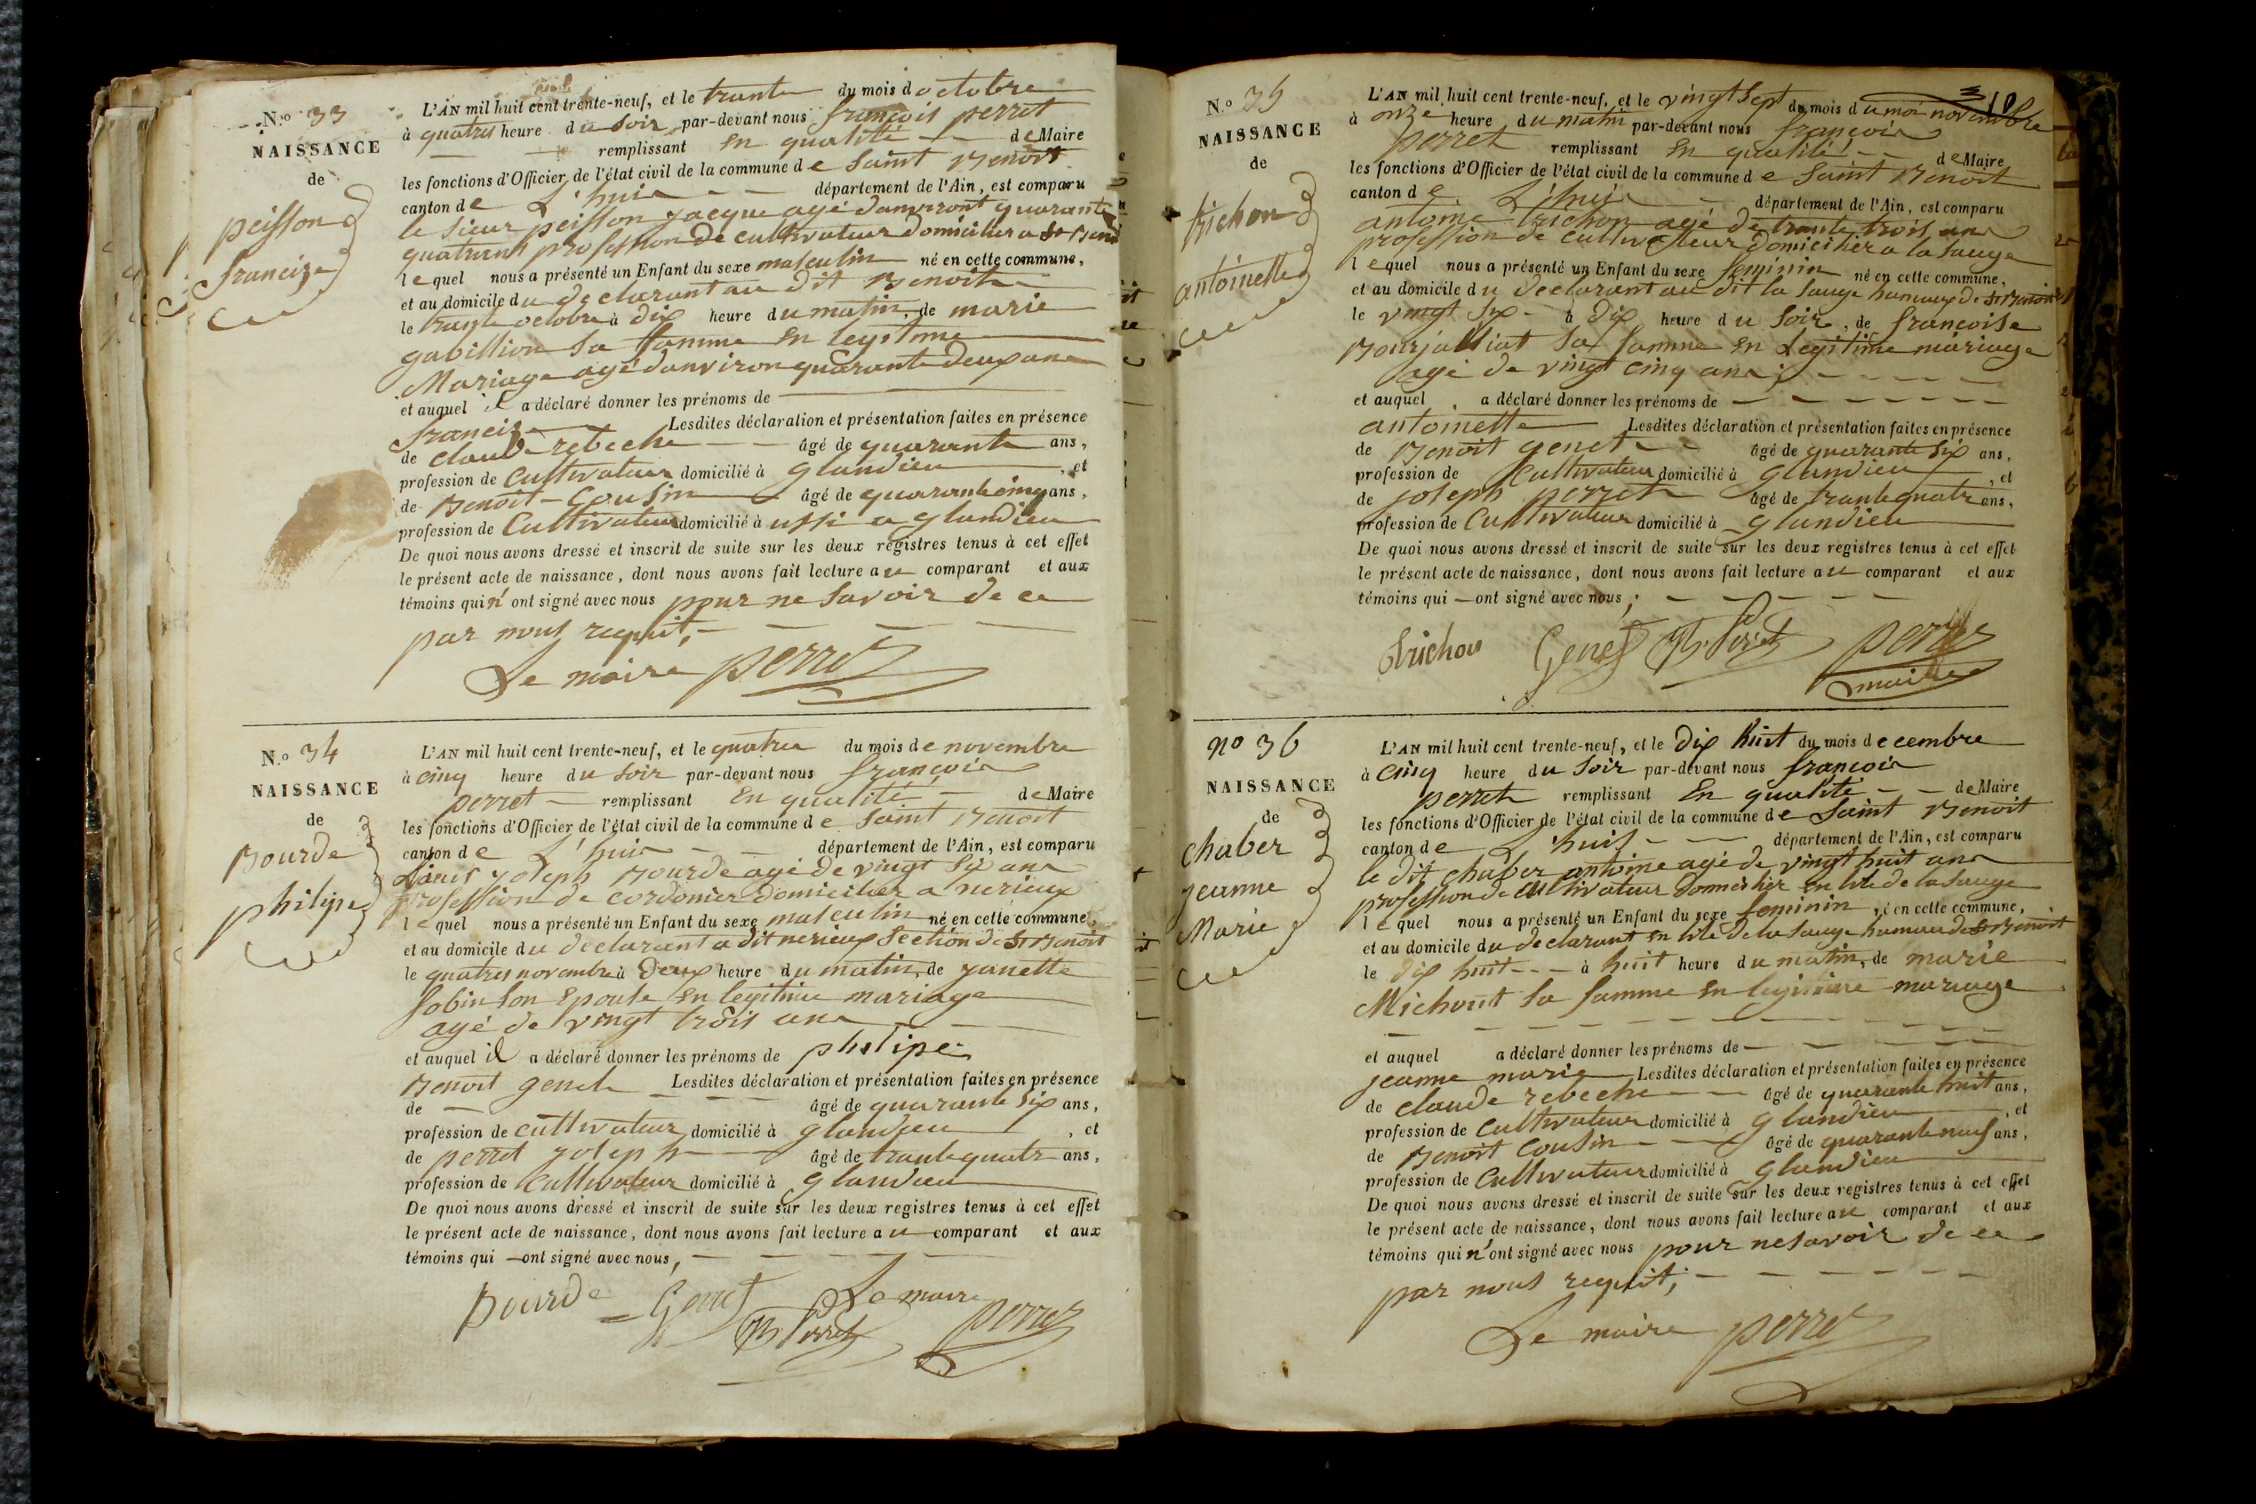 N.o 33
NAISSANCE
de
peisson
francize
L'AN mil huit cent trente-neuf, et le trante du mois d octobre
à quatres heure du soir par-devant nous françois perret
remplissant en qualité de Maire
les fonctions d'Officier de l'état civil de la commune de saint Benoit
canton de L'huis département de l'Ain, est comparu
le sieur peisson jacque agé danviront quarante
quatrans profession de cultivateur domicilier a St Benoit
lequel nous a présenté un Enfant du sexe masculin né en cette commune,
et au domicile du declarant au dit Benoit
le trante octobre à dix heure du matin, de marie
gabillion sa famme en legitime
Mariage agé danviron quarante deux ans
et auquel il a déclaré donner les prénoms de
francize Lesdites déclaration et présentation faites en présence
de claude rebeche âgé de quarante ans,
profession de cultivateur domicilié à glandieu, et
de Benoit Cousin âgé de quarante cinq ans,
profession de Cultivateur domicilié à ussi a glandieu
De quoi nous avons dressé et inscrit de suite sur les deux registres tenus à cet effet
le présent acte de naissance, dont nous avons fait lecture au comparant et aux
témoins qui n'ont signé avec nous pour ne savoir de ce
par nous requit,
Le maire perret
N.o 34
NAISSANCE
de
Bourde
philipe
L'AN mil huit cent trente-neuf, et le quatre du mois de novembre
à cinq heure du soir par-devant nous françois
perret remplissant en qualité de Maire
les fonctions d'Officier de l'état civil de la commune de saint Benoit
canton de L'huis département de l'Ain, est comparu
Louis joseph Bourde agé de vingt six ans
profession de cordonier domicilier a nerieux
lequel nous a présenté un Enfant du sexe masculin né en cette commune,
et au domicile du declarant a dit nerieux section de St Benoit
le quatres novembre à deux heure du matin, de janette
Sobin son epouse en legitime mariage
agé de vingt trois ans
et auquel il a déclaré donner les prénoms de philipe
Benoit genet Lesdites déclaration et présentation faites en présence
de âgé de quarante six ans,
profession de cultivateur domicilié à glandieu, et
de perret joseph âgé de trante quatr ans,
profession de cultivateur domicilié à glandieu
De quoi nous avons dressé et inscrit de suite sur les deux registres tenus à cet effet
le présent acte de naissance, dont nous avons fait lecture au comparant et aux
témoins qui ont signé avec nous,
Bourde Genet Le maire
Perret perret
N.o 35
NAISSANCE
de
trichon
antoinette
L'AN mil huit cent trente-neuf, et le vingt sept du mois du moi novembre
à onze heure du matin par-devant nous françois
perret remplissant en qualité de Maire
les fonctions d'Officier de l'état civil de la commune de saint Benoit
canton de L'huis département de l'Ain, est comparu
antoine trichon agé de trante trois ans
profession de cultivateur domicilier a la sauge
lequel nous a présenté un Enfant du sexe feminin né en cette commune,
et au domicile du declarant au dit la sauge hameaux de St Benoit
le vingt six à dix heure du soir, de françoise
Bourjalliat sa famme en Legitime mariage
agé de vingt cinq ans;
et auquel a déclaré donner les prénoms de
antoinette Lesdites déclaration et présentation faites en présence
de Benoit genet âgé de quarante six ans,
profession de cultivateur domicilié à glandieu, et
de joseph perret âgé de trante quatr ans,
profession de Cultivateur domicilié à glandieu
De quoi nous avons dressé et inscrit de suite sur les deux registres tenus à cet effet
le présent acte de naissance, dont nous avons fait lecture au comparant et aux
témoins qui ont signé avec nous;
trichon Genet Perret perret
maire
no 36
NAISSANCE
de
chaber
jeanne
Marie
L'AN mil huit cent trente-neuf, et le dix huit du mois decembre
à cinq heure du soir par-devant nous françois
perret remplissant en qualité de Maire
les fonctions d'Officier de l'état civil de la commune de saint Benoit
canton de L'huis département de l'Ain, est comparu
le dit chaber antoine agé de vingt huit ans
profession de cultivateur domicilier en lile de la sauge
lequel nous a présenté un Enfant du sexe feminin né en cette commune,
et au domicile du declarant en lile de la sauge hameau de St Benoit
le dix huit à huit heure du matin, de marie
Michout sa famme en legitime mariage
et auquel a déclaré donner les prénoms de
jeanne marie Lesdites déclaration et présentation faites en présence
de claude rebeche âgé de quarante huit ans,
profession de cultivateur domicilié à glandieu, et
de Benoit cousin âgé de quarante neuf ans,
profession de Cultivateur domicilié à glandieu
De quoi nous avons dressé et inscrit de suite sur les deux registres tenus à cet effet
le présent acte de naissance, dont nous avons fait lecture au comparant et aux
témoins qui n'ont signé avec nous pour ne savoir de ce
par nous requit;
Le maire perret